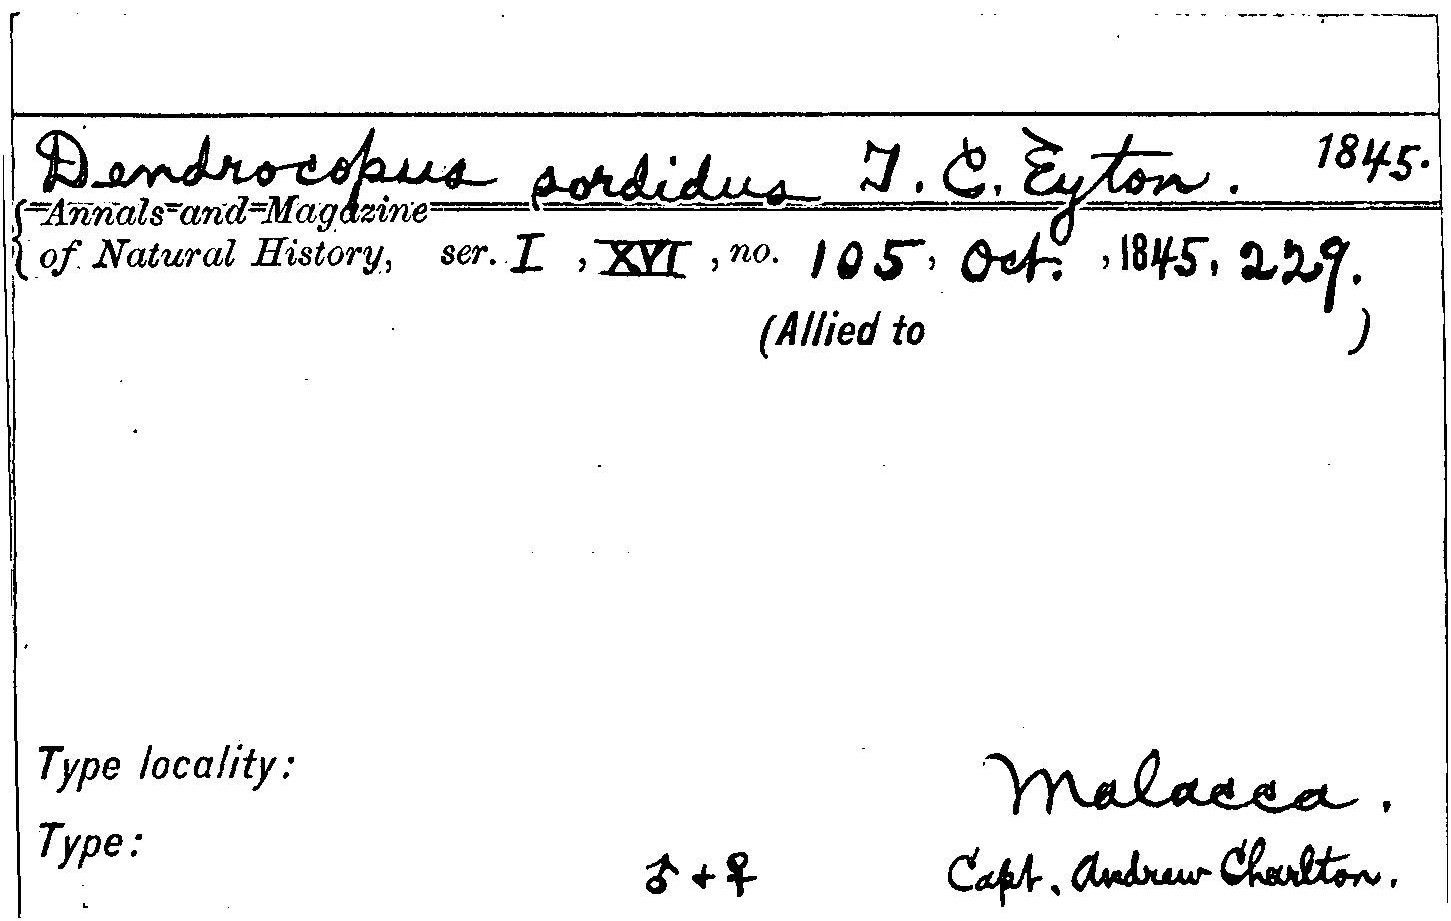 Dendrocopus sordidus T. C. Eyton. 1845.
Annals and Magazine
of Natural History, ser. I, XVI, no. 105, Oct., 1845, 229.
(Allied to )
Type locality: Malacca.
Type: ♂ + ♀ Capt. Andrew Charlton.